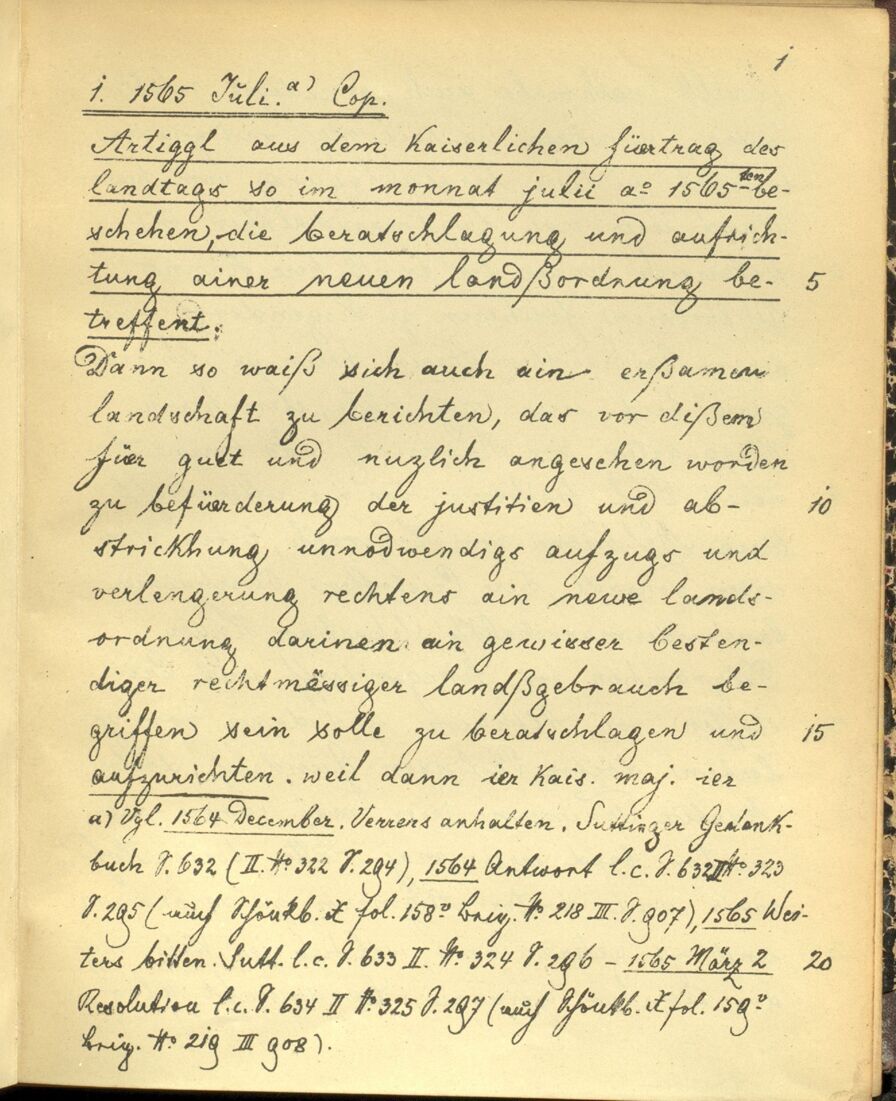 1
1. 1565 Juli. a) Cop.
Artiggl aus dem Kaiserlichen füertrag des
landtags so im monnat julii ao 1565ten be-
schehen, die beratschlagung und aufrich-
tung ainer neuen landßordnung be- 5
treffent.
Dann so waiß sich auch ain erßamen
landschaft zu berichten, das vor dißem
für guet und nuzlich angesehen worden
zu befürderung der justitien und ab- 10
strickhung unnodwendigs aufzugs und
verlengerung rechtens ain newe lands-
ordnung darinen ain gewisser besten-
diger rechtmëssiger landßgebrauch be-
griffen sein solle zu beratschlagen und 15
aufzurichten. weil dann ier Kais. maj. ier
a) Vgl. 1564 December. Verrers anhalten. Suttinger Gedenk-
buch S. 632 (II. No 322 S. 294), 1564 Antwort l.c. S. 632 II No 323
S. 295 (auch Schönkb. X fol. 158v No 218 III. S. 907), 1565 Wei-
ters bitten. Sutt. l.c. S. 633 II. No 324 S. 296 – 1565 März 2 20
Resolution l.c. S. 634 II No 325 S. 297 (auch Schönkb. X fol. 159v
No 219 III 908).